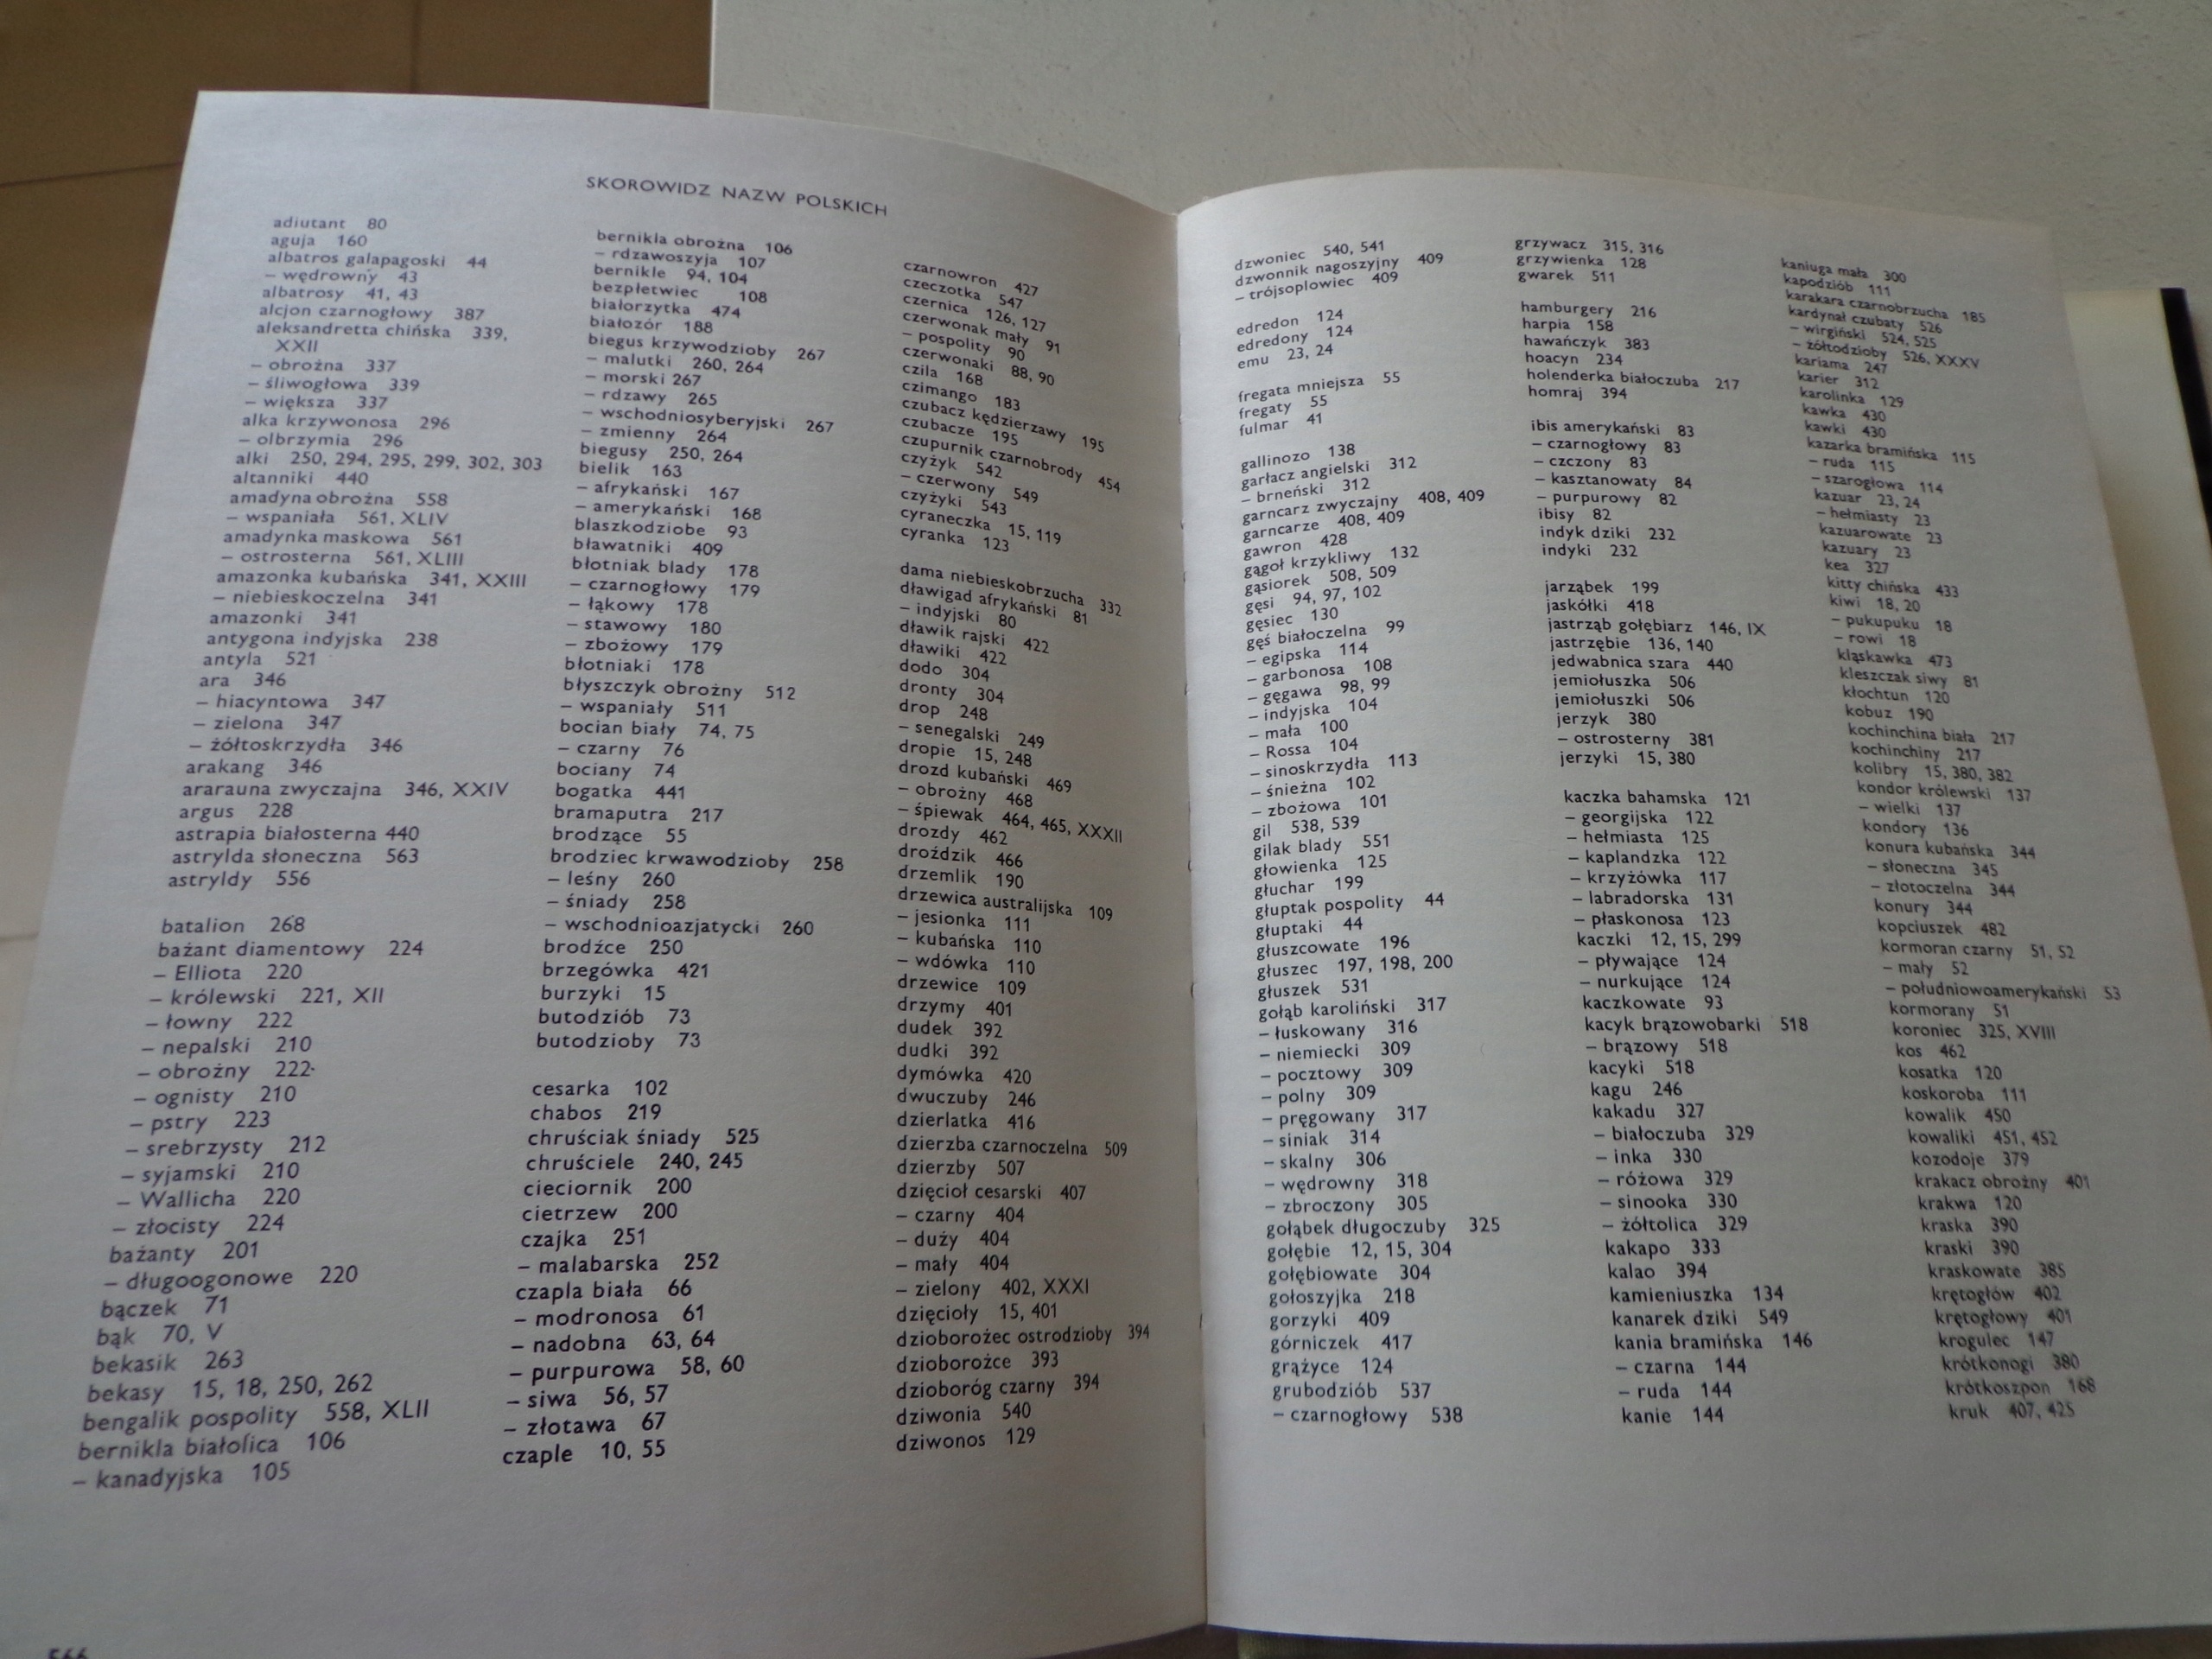 SKOROWIDZ NAZW POLSKICH
adiutant 80
aguja 160
albatros galapagoski 44
– wędrowny 43
albatrosy 41, 43
alcjon czarnogłowy 387
aleksandretta chińska 339,
XXII
– obrożna 337
– śliwogłowa 339
– większa 337
alka krzywonosa 296
– olbrzymia 296
alki 250, 294, 295, 299, 302, 303
altanniki 440
amadyna obrożna 558
– wspaniała 561, XLIV
amadynka maskowa 561
– ostrosterna 561, XLIII
amazonka kubańska 341, XXIII
– niebieskoczelna 341
amazonki 341
antygona indyjska 238
antyla 521
ara 346
– hiacyntowa 347
– zielona 347
– żółtoskrzydła 346
arakang 346
ararauna zwyczajna 346, XXIV
argus 228
astrapia białosterna 440
astrylda słoneczna 563
astryldy 556
batalion 268
bażant diamentowy 224
– Elliota 220
– królewski 221, XII
– łowny 222
– nepalski 210
– obrożny 222
– ognisty 210
– pstry 223
– srebrzysty 212
– syjamski 210
– Wallicha 220
– złocisty 224
bażanty 201
– długoogonowe 220
bączek 71
bąk 70, V
bekasik 263
bekasy 15, 18, 250, 262
bengalik pospolity 558, XLII
bernikla białolica 106
– kanadyjska 105
bernikla obrożna 106
– rdzawoszyja 107
bernikle 94, 104
bezpłetwiec 108
białorzytka 474
białozór 188
biegus krzywodzioby 267
– malutki 260, 264
– morski 267
– rdzawy 265
– wschodniosyberyjski 267
– zmienny 264
biegusy 250, 264
bielik 163
– afrykański 167
– amerykański 168
blaszkodziobe 93
bławatniki 409
błotniak blady 178
– czarnogłowy 179
– łąkowy 178
– stawowy 180
– zbożowy 179
błotniaki 178
błyszczyk obrożny 512
– wspaniały 511
bocian biały 74, 75
– czarny 76
bociany 74
bogatka 441
bramaputra 217
brodzące 55
brodziec krwawodzioby 258
– leśny 260
– śniady 258
– wschodnioazjatycki 260
brodźce 250
brzegówka 421
burzyki 15
butodziób 73
butodzioby 73
cesarka 102
chabos 219
chruściak śniady 525
chruściele 240, 245
cieciornik 200
cietrzew 200
czajka 251
– malabarska 252
czapla biała 66
– modronosa 61
– nadobna 63, 64
– purpurowa 58, 60
– siwa 56, 57
– złotawa 67
czaple 10, 55
czarnowron 427
czeczotka 547
czernica 126, 127
czerwonak mały 91
– pospolity 90
czerwonaki 88, 90
czila 168
czimango 183
czubacz kędzierzawy 195
czubacze 195
czupurnik czarnobrody 454
czyżyk 542
– czerwony 549
czyżyki 543
cyraneczka 15, 119
cyranka 123
dama niebieskobrzucha 332
dławigad afrykański 81
– indyjski 80
dławik rajski 422
dławiki 422
dodo 304
dronty 304
drop 248
– senegalski 249
dropie 15, 248
drozd kubański 469
– obrożny 468
– śpiewak 464, 465, XXXII
drozdy 462
droździk 466
drzemlik 190
drzewica australijska 109
– jesionka 111
– kubańska 110
– wdówka 110
drzewice 109
drzymy 401
dudek 392
dudki 392
dymówka 420
dwuczuby 246
dzierlatka 416
dzierzba czarnoczelna 509
dzierzby 507
dzięcioł cesarski 407
– czarny 404
– duży 404
– mały 404
– zielony 402, XXXI
dzięcioły 15, 401
dzioborożec ostrodzioby 394
dzioborożce 393
dzioboróg czarny 394
dziwonia 540
dziwonos 129
dzwoniec 540, 541
dzwonnik nagoszyjny 409
– trójsoplowiec 409
edredon 124
edredony 124
emu 23, 24
fregata mniejsza 55
fregaty 55
fulmar 41
gallinozo 138
garłacz angielski 312
– brneński 312
garncarz zwyczajny 408, 409
garncarze 408, 409
gawron 428
gągoł krzykliwy 132
gąsiorek 508, 509
gęsi 94, 97, 102
gęsiec 130
gęś białoczelna 99
– egipska 114
– garbonosa 108
– gęgawa 98, 99
– indyjska 104
– mała 100
– Rossa 104
– sinoskrzydła 113
– śnieżna 102
– zbożowa 101
gil 538, 539
gilak blady 551
głowienka 125
głuchar 199
głuptak pospolity 44
głuptaki 44
głuszcowate 196
głuszec 197, 198, 200
głuszek 531
gołąb karoliński 317
– łuskowany 316
– niemiecki 309
– pocztowy 309
– polny 309
– pręgowany 317
– siniak 314
– skalny 306
– wędrowny 318
– zbroczony 305
gołąbek długoczuby 325
gołębie 12, 15, 304
gołębiowate 304
gołoszyjka 218
gorzyki 409
górniczek 417
grążyce 124
grubodziób 537
– czarnogłowy 538
grzywacz 315, 316
grzywienka 128
gwarek 511
hamburgery 216
harpia 158
hawańczyk 383
hoacyn 234
holenderka białoczuba 217
homraj 394
ibis amerykański 83
– czarnogłowy 83
– czczony 83
– kasztanowaty 84
– purpurowy 82
ibisy 82
indyk dziki 232
indyki 232
jarząbek 199
jaskółki 418
jastrząb gołębiarz 146, IX
jastrzębie 136, 140
jedwabnica szara 440
jemiołuszka 506
jemiołuszki 506
jerzyk 380
– ostrosterny 381
jerzyki 15, 380
kaczka bahamska 121
– georgijska 122
– hełmiasta 125
– kaplandzka 122
– krzyżówka 117
– labradorska 131
– płaskonosa 123
kaczki 12, 15, 299
– pływające 124
– nurkujące 124
kaczkowate 93
kacyk brązowobarki 518
– brązowy 518
kacyki 518
kagu 246
kakadu 327
– białoczuba 329
– inka 330
– różowa 329
– sinooka 330
– żółtolica 329
kakapo 333
kalao 394
kamieniuszka 134
kanarek dziki 549
kania bramińska 146
– czarna 144
– ruda 144
kanie 144
kaniuga mała 300
kapodziób 111
karakara czarnobrzucha 185
kardynał czubaty 526
– wirgiński 524, 525
– żółtodzioby 526, XXXV
kariama 247
karier 312
karolinka 129
kawka 430
kawki 430
kazarka bramińska 115
– ruda 115
– szarogłowa 114
kazuar 23, 24
– hełmiasty 23
kazuarowate 23
kazuary 23
kea 327
kitty chińska 433
kiwi 18, 20
– pukupuku 18
– rowi 18
kląskawka 473
kleszczak siwy 81
kłochtun 120
kobuz 190
kochinchina biała 217
kochinchiny 217
kolibry 15, 380, 382
kondor królewski 137
– wielki 137
kondory 136
konura kubańska 344
– słoneczna 345
– złotoczelna 344
konury 344
kopciuszek 482
kormoran czarny 51, 52
– mały 52
– południowoamerykański 53
kormorany 51
koroniec 325, XVIII
kos 462
kosatka 120
koskoroba 111
kowalik 450
kowaliki 451, 452
kozodoje 379
krakacz obrożny 401
krakwa 120
kraska 390
kraski 390
kraskowate 385
krętogłów 402
krętogłowy 401
krogulec 147
krótkonogi 380
krótkoszpon 168
kruk 407, 425